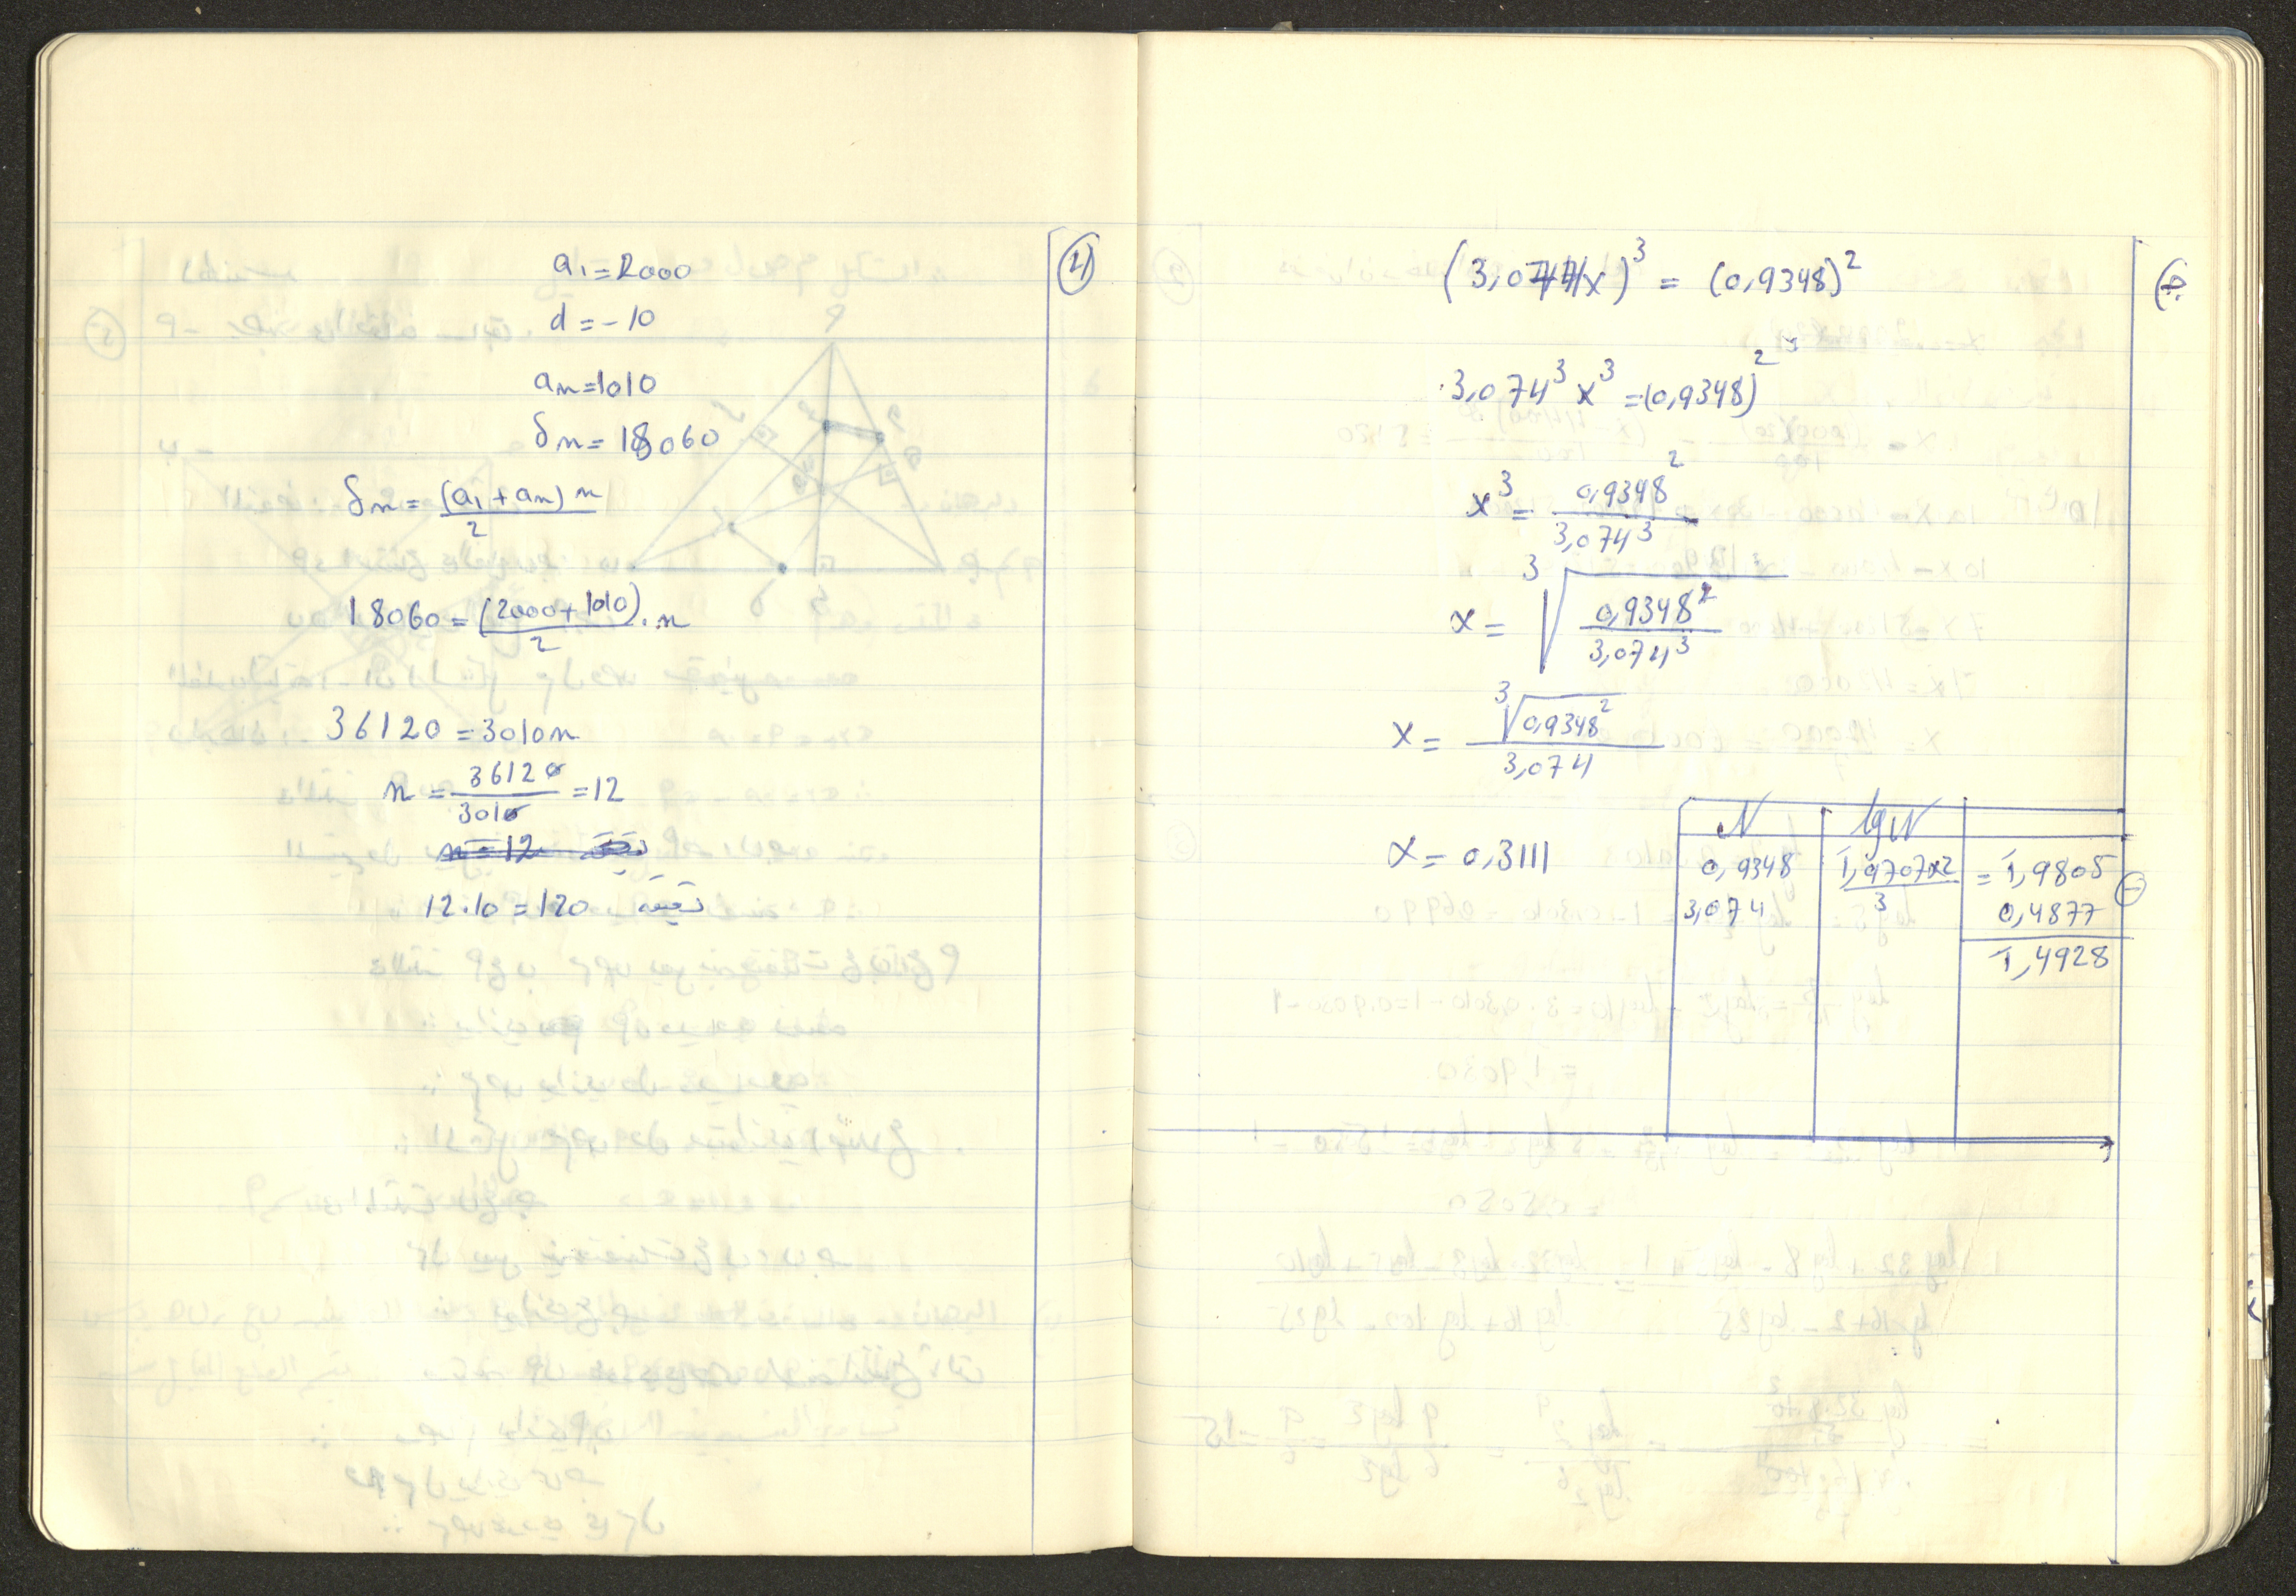 (4)
a₁=2000
d=-10
aₙ=1010
Sₙ=18060
Sₙ=(a₁+aₙ)n/2
18060=(2000+1010)/2 . n
36120=3010n
n=36120/3010=12
n=12 دقيقة
12.10=120 دقيقة
(3,074x)³ = (0,9348)²
3,074³ x³ =(0,9348)²
x³ = 0,9348²/3,074³
x = ³√(0,9348²/3,074³)
x = ³√(0,9348²)/3,074
x = 0,3111
N lgN
0,9348 1̄,9707×2/3 = 1̄,9805
3,074 0,4877
1̄,4928